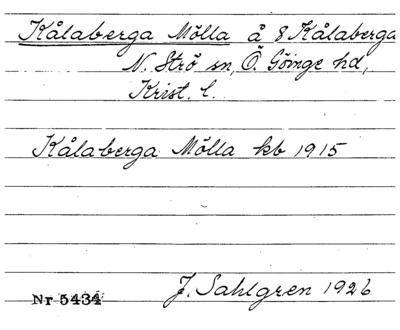 Kålaberga Mölla å 8 Kålaberga
N. Strö sn, Ö. Göinge hd,
Krist. l.
Kålaberga Mölla kb 1915
Nr 5434 J. Sahlgren 1926